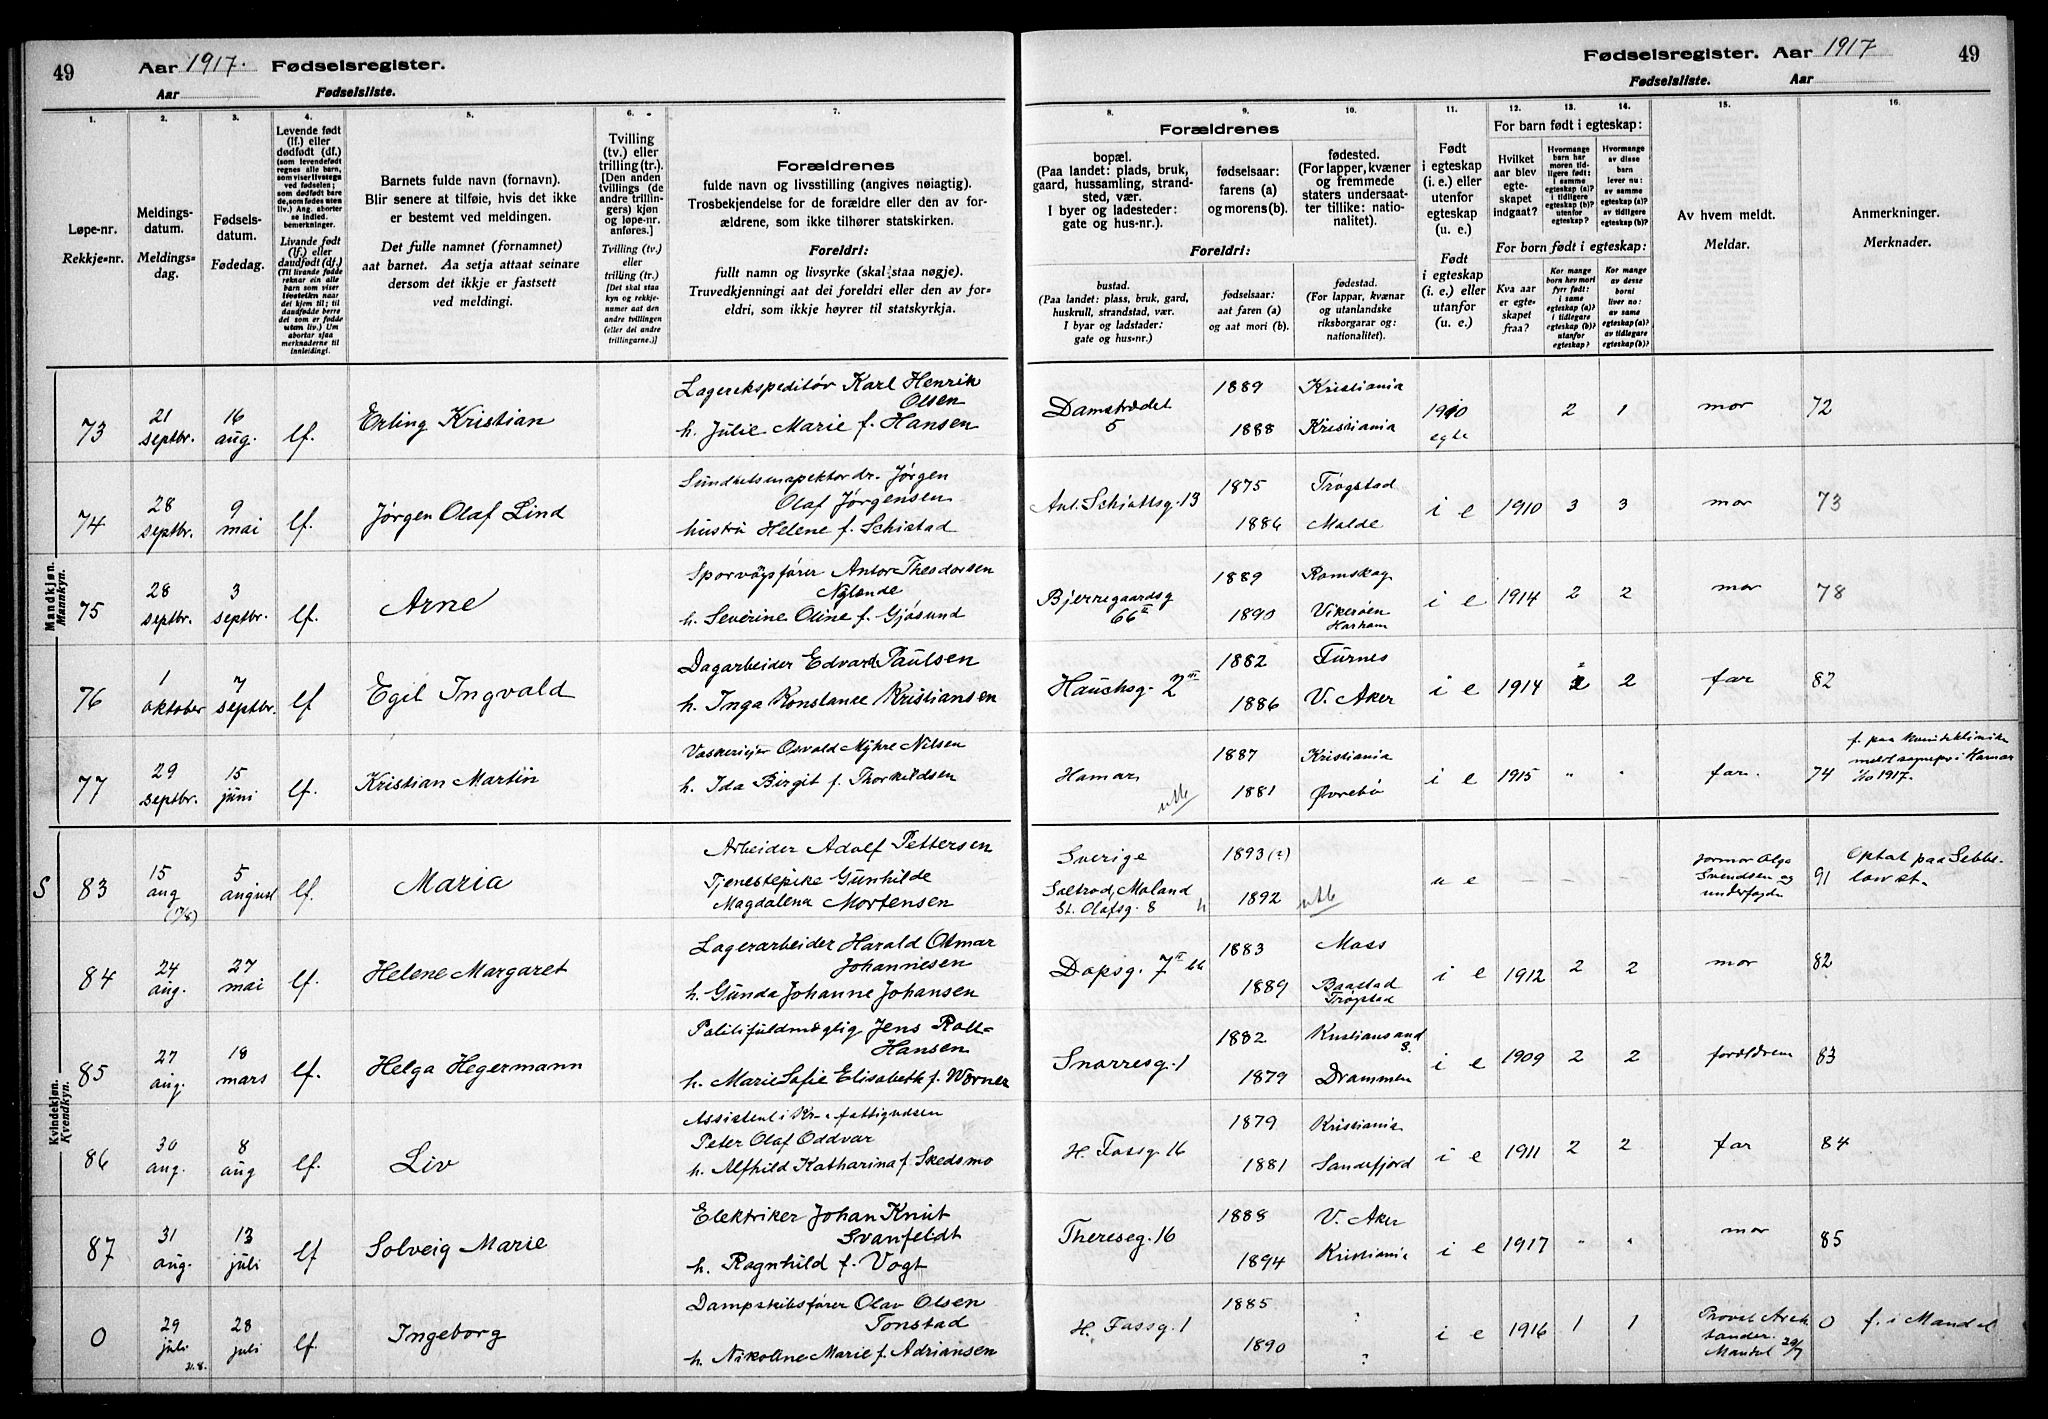 49
Aar 1917. Fødselsregister.
Aar Fødselsliste.
1.
2.
3.
4.
5.
6.
7.
Løpe-nr.
Rekkje-nr.
Meldings-
datum.
Meldings-
dag.
Fødsels-
datum.
Fødedag.
Levende født
(lf.) eller
dødfødt (df.)
(som levendefødt
regnes alle barn,
som viser livstegn
ved fødselen;
som dødfødt bare
de, som fødes uten
liv.) Ang. aborter
se indled.
bemerkninger.
Livande født
(lf.) eller
daudfødt (df.)
(Til livande fødde
reknar ein alle
barn som viser
livsteikn naar
dei kjem til; til
daudfødde berre
dei som er fødde
utan liv.) Um
abortar sjaa
merknaderne til
innleidingi.
Barnets fulde navn (fornavn).
Blir senere at tilføie, hvis det ikke
er bestemt ved meldingen.
Det fulle namnet (fornamnet)
aat barnet. Aa setja attaat seinare
dersom det ikkje er fastsett
ved meldingi.
Tvilling
(tv.) eller
trilling (tr.).
[Den anden
tvillings (de
andre trillin-
gers) kjøn
og løpe-nr.
anføres.]
Tvilling (tv.)
eller
trilling (tr.)
[Det skal staa
kyn og rekkje-
numer aat den
andre tvillingen
(eller dei andre
trillingarne.)]
Forældrenes
fulde navn og livsstilling (angives nøiagtig).
Trosbekjendelse for de forældre eller den av for-
ældrene, som ikke tilhører statskirken.
Foreldri:
fullt namn og livsyrke (skal staa nøgje).
Truvedkjenningi aat dei foreldri eller den av for-
eldri, som ikkje høyrer til statskyrkja.
Mandkjøn.
Mannkyn.
73 21 septbr. 16 aug. lf. Erling Kristian Lagerekspeditör Karl Henrik
Olsen
h. Julie Marie f. Hansen
74 28 septbr. 9 mai lf. Jørgen Olaf Lind Sundhetsinspektør dr. Jørgen
Olaf Jørgensen
hustru Helene f. Schistad
75 28 septbr. 3 septbr. lf. Arne Sporvögsfører Anton Theodorsen
h. Severine Oline f. Gjøsund
76 1 oktober 7 septbr. lf Egil Ingvald Dagarbeider Edvard Paulsen
h. Inga Konstanse Kristiansen
77 29 septbr. 15 juni lf. Kristian Martin Vaskerieier Osvald Myhre Nilsen
h. Ida Birgit f. Thorkildsen
Kvindekjøn.
Kvendkyn.
S 83 15 aug (17/8) 5 august lf. Maria Arbeider Adolf Pettersen
Tjenestepike Gunhilde
Magdalena Mortensen
84 24 aug. 27 mai lf. Helene Margaret Lagerarbeider Harald Otmar
Johannesen
h. Gunda Johanne Johansen
85 27 aug. 18 mars lf. Helga Hegermann Politifuldmægtig Jens Roll-
Hansen
h. Marie Sofie Elisabeth f. Wørner
86 30 aug. 8 aug lf. Liv Assistent i Kr-a fattigvæsen
Peter Olaf Oddvar
h. Alfhild Katharina f. Skedsmo
87 31 aug. 13 juli lf Solveig Marie Elektriker Johan Knut
Svanfeldt
h. Ragnhild f. Vogt
0 29 juli 31.8. 28 juli lf. Ingeborg Dampskibsfører Olav Olsen
Tonstad
h. Nikoline Marie f. Adriansen
Fødselsregister. Aar 1917 49
Fødselsliste. Aar
8.
9.
10.
11.
12.
13.
14.
15.
16.
Forældrenes
bopæl.
(Paa landet: plads, bruk,
gaard, hussamling, strand-
sted, vær.
I byer og ladesteder:
gate og hus-nr.).
fødselsaar:
farens (a)
og morens (b).
fødested.
(For lapper, kvæner
og fremmede
staters undersaat-
ter tillike: natio-
nalitet).
Foreldri:
bustad.
(Paa landet: plass, bruk, gard,
huskrull, strandstad, vær.
I byar og ladstader:
gate og hus-nr.)
fødselsaar:
aat faren (a)
og aat mori (b).
fødestad.
(For lappar, kvænar
og utanlandske
riksborgarar og:
nationalitet).
Født
i egteskap
(i. e.) eller
utenfor
egteskap
(u. e.)
Født
i egteskap
(i. e.) eller
utanfor
(u. e.)
For barn født i egteskap:
Hvilket
aar blev
egte-
skapet
indgaat?
Hvormange
barn har
moren tid-
ligere født:
i samme
egteskap (a)?
i tidligere
egteskap (b)?
utenfor
egteskap?
Hvormange
av disse
barn
lever nu:
av samme
egteskap (a)?
av tidligere
egteskap (b)?
For born født i egteskap:
Kva aar
er egte-
skapet
fraa?
Kor mange
born hev mori
fyrr født:
i same
egteskap (a)?
i tidlegare
egteskap (b)?
utanfor
egteskap?
Kor mange
av desse
borni
liver no:
av same
egteskap (a)?
av tidlegare
egteskap (b)?
Av hvem meldt.
Meldar.
Anmerkninger.
Merknader.
Damstrædet 5 1889 1888 Kristiania Kristiania 1910 egte 2 1 mor 72
Ant. Schiøttsg. 13 1875 1886 Trøgstad Molde i e 1910 3 3 mor 73
Bjerregaardsg 66 II 1889 1890 Romskog i e 1914 2 2 mor 78
Hauchsg. 2 III 1882 1886 Furnes V. Aker i e 1914 2 2 far 82
Hamar 1887 1881 Kristiania Øvrebö i e 1915 " " far. 74 f. paa kvindeklinikken
1/10 1917.
Sverige
St. Olafsg. 8 1893 (?) 1892 u e – – – formor Olga
Svendsen og
91
Dopsg. 7 1883 1889 Moss Baastad
Trøgstad i e 1912 2 2 mor 82
Snorresg. 1 1882 1879 Kristiansand
S. Drammen i e 1909 2 2 forældrene 83
H. Fossg. 16 1879 1881 Kristiania Sandefjord i e 1911 2 2 far 84
Thereseg. 16 1888 1894 V. Aker Kristiania i e 1917 " " mor 85
H. Fossg. 1 1885 1890 ? ? i e 1916 1 1 Mandal 29/7 0 f. i Mandal